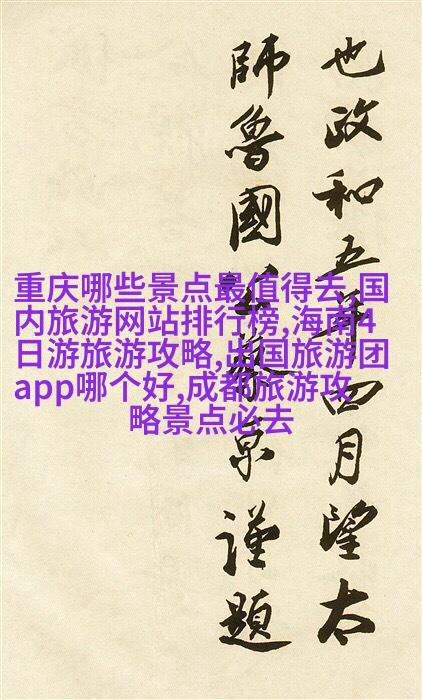 也政和五年四月望太
師魯國公蔡京謹題
重庆哪些景点最值得去,国
内旅游网站排行榜,海南4
日游旅游攻略,出国旅游团
app哪个好,成都旅游攻
略景点必去